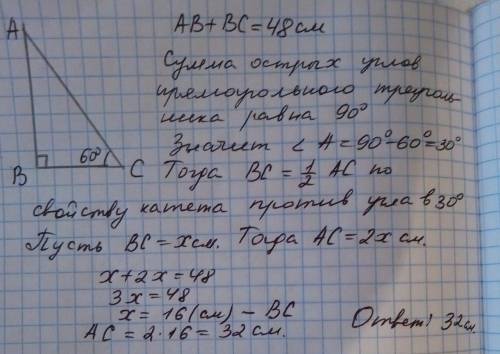 A
B
C
60°
AB+BC=48см
Сумма острых углов
прямоугольного треуголь
ника равна 90°
Значит < A = 90°-60°=30°
Тогда BC = 1/2 AC по
свойству катета против угла в 30°
Пусть BC=xсм. Тогда AC=2x см.
x+2x=48
3x=48
x= 16(см) – BC
AC= 2·16 = 32 см.
Ответ: 32см.